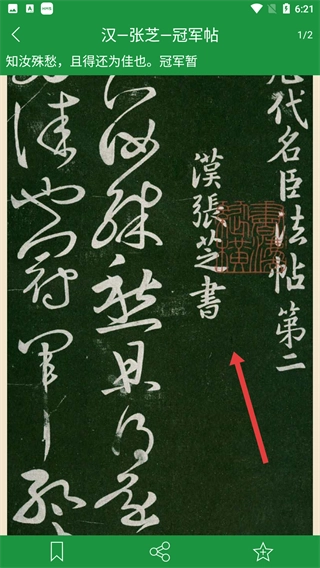 6:21
汉—张芝—冠军帖
1/2
知汝殊愁，且得还为佳也。冠军暂
歷代名臣法帖第二
漢張芝書
汝殊愁且得還
佳也冠軍暫